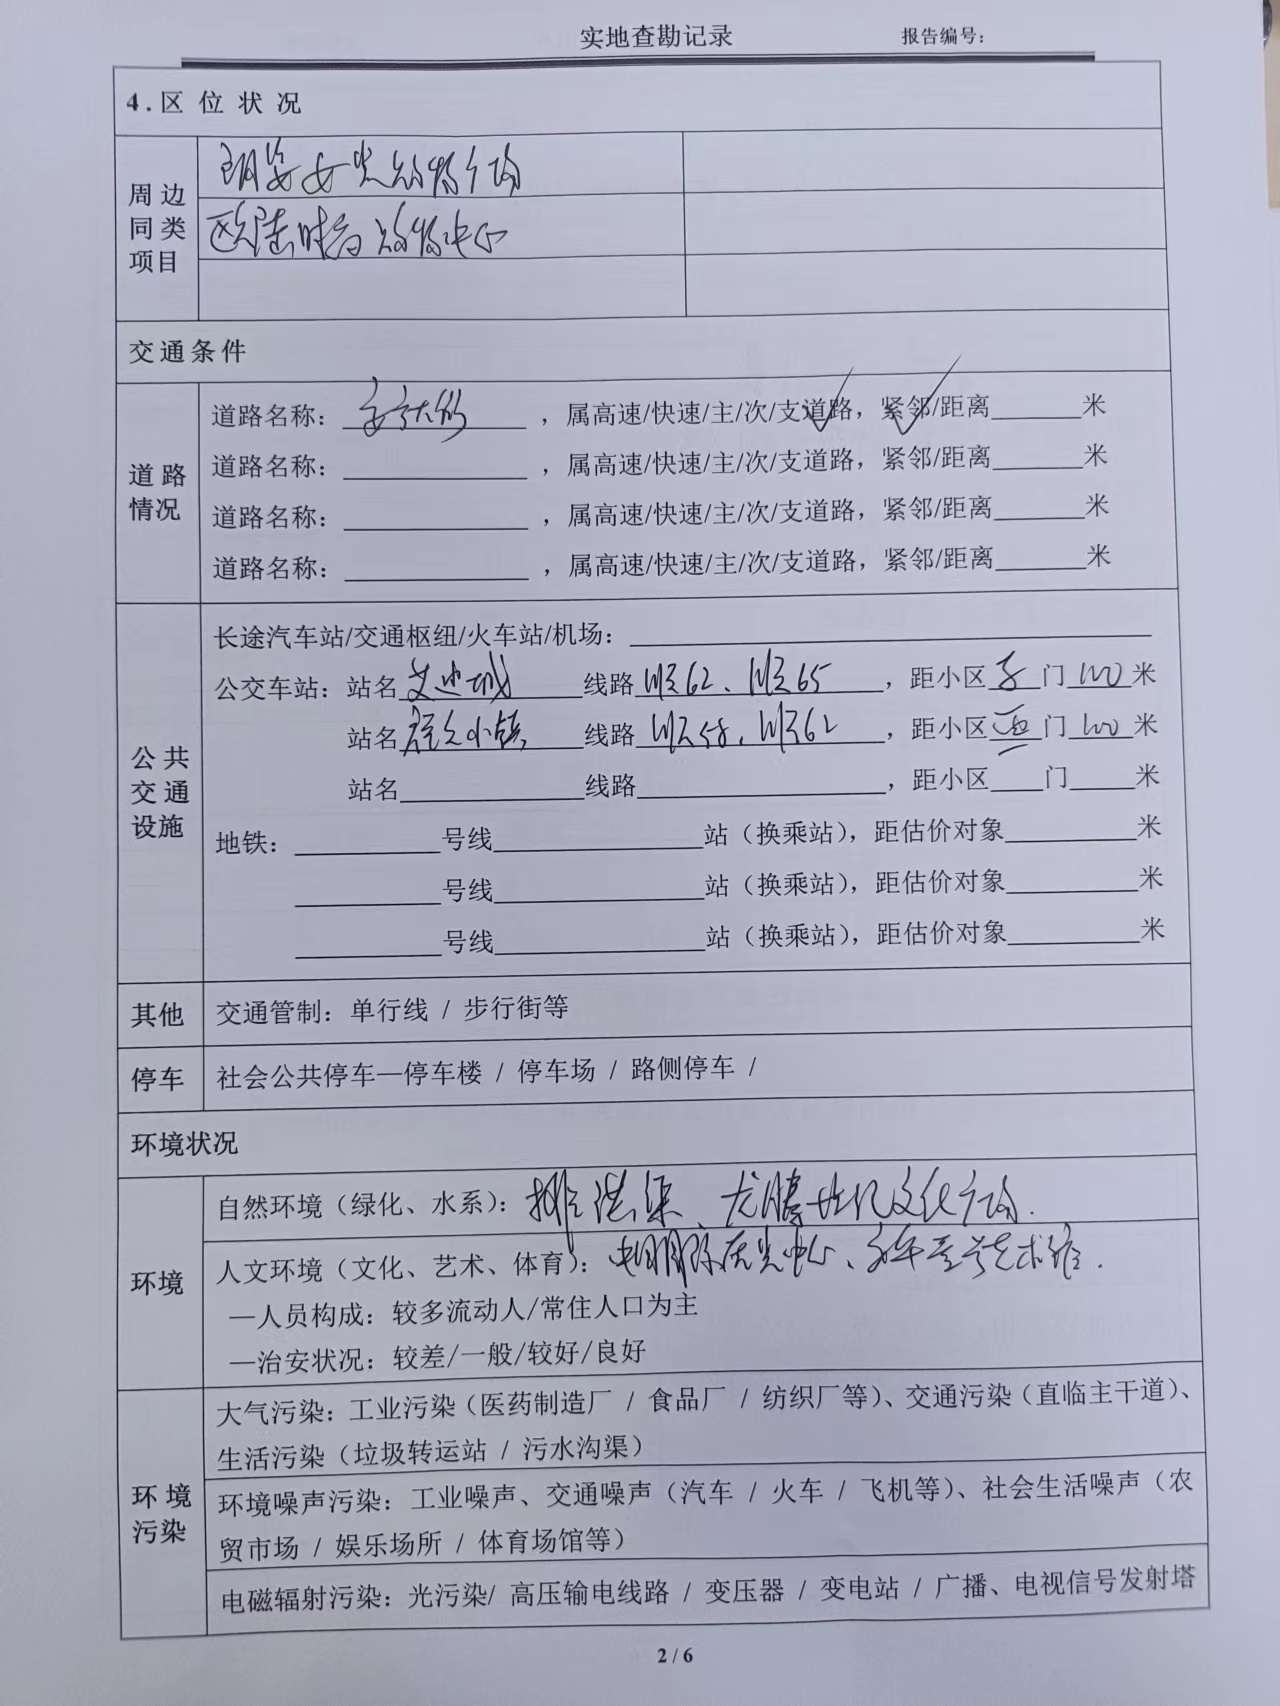 实地查勘记录
报告编号：
4.区位状况
周边同类项目
购物广场
欧陆时尚购物中心
交通条件
道路情况
道路名称：，属高速/快速/主/次/支道路，紧邻/距离______米
道路名称：______，属高速/快速/主/次/支道路，紧邻/距离______米
道路名称：______，属高速/快速/主/次/支道路，紧邻/距离______米
道路名称：______，属高速/快速/主/次/支道路，紧邻/距离______米
公共交通设施
长途汽车站/交通枢纽/火车站/机场：______
公交车站：站名艾迪城 线路顺62、顺65，距小区东门100米
站名小镇 线路顺58、顺62，距小区西门100米
站名______线路______，距小区____门____米
地铁：______号线______站（换乘站），距估价对象______米
______号线______站（换乘站），距估价对象______米
______号线______站（换乘站），距估价对象______米
其他
交通管制：单行线 / 步行街等
停车
社会公共停车—停车楼 / 停车场 / 路侧停车 /
环境状况
环境
自然环境（绿化、水系）：排洪渠、龙腾世纪文化广场.
人文环境（文化、艺术、体育）：艺术馆.
—人员构成：较多流动人/常住人口为主
—治安状况：较差/一般/较好/良好
环境污染
大气污染：工业污染（医药制造厂 / 食品厂 / 纺织厂等）、交通污染（直临主干道）、
生活污染（垃圾转运站 / 污水沟渠）
环境噪声污染：工业噪声、交通噪声（汽车 / 火车 / 飞机等）、社会生活噪声（农
贸市场 / 娱乐场所 / 体育场馆等）
电磁辐射污染：光污染/ 高压输电线路 / 变压器 / 变电站 / 广播、电视信号发射塔
2 / 6